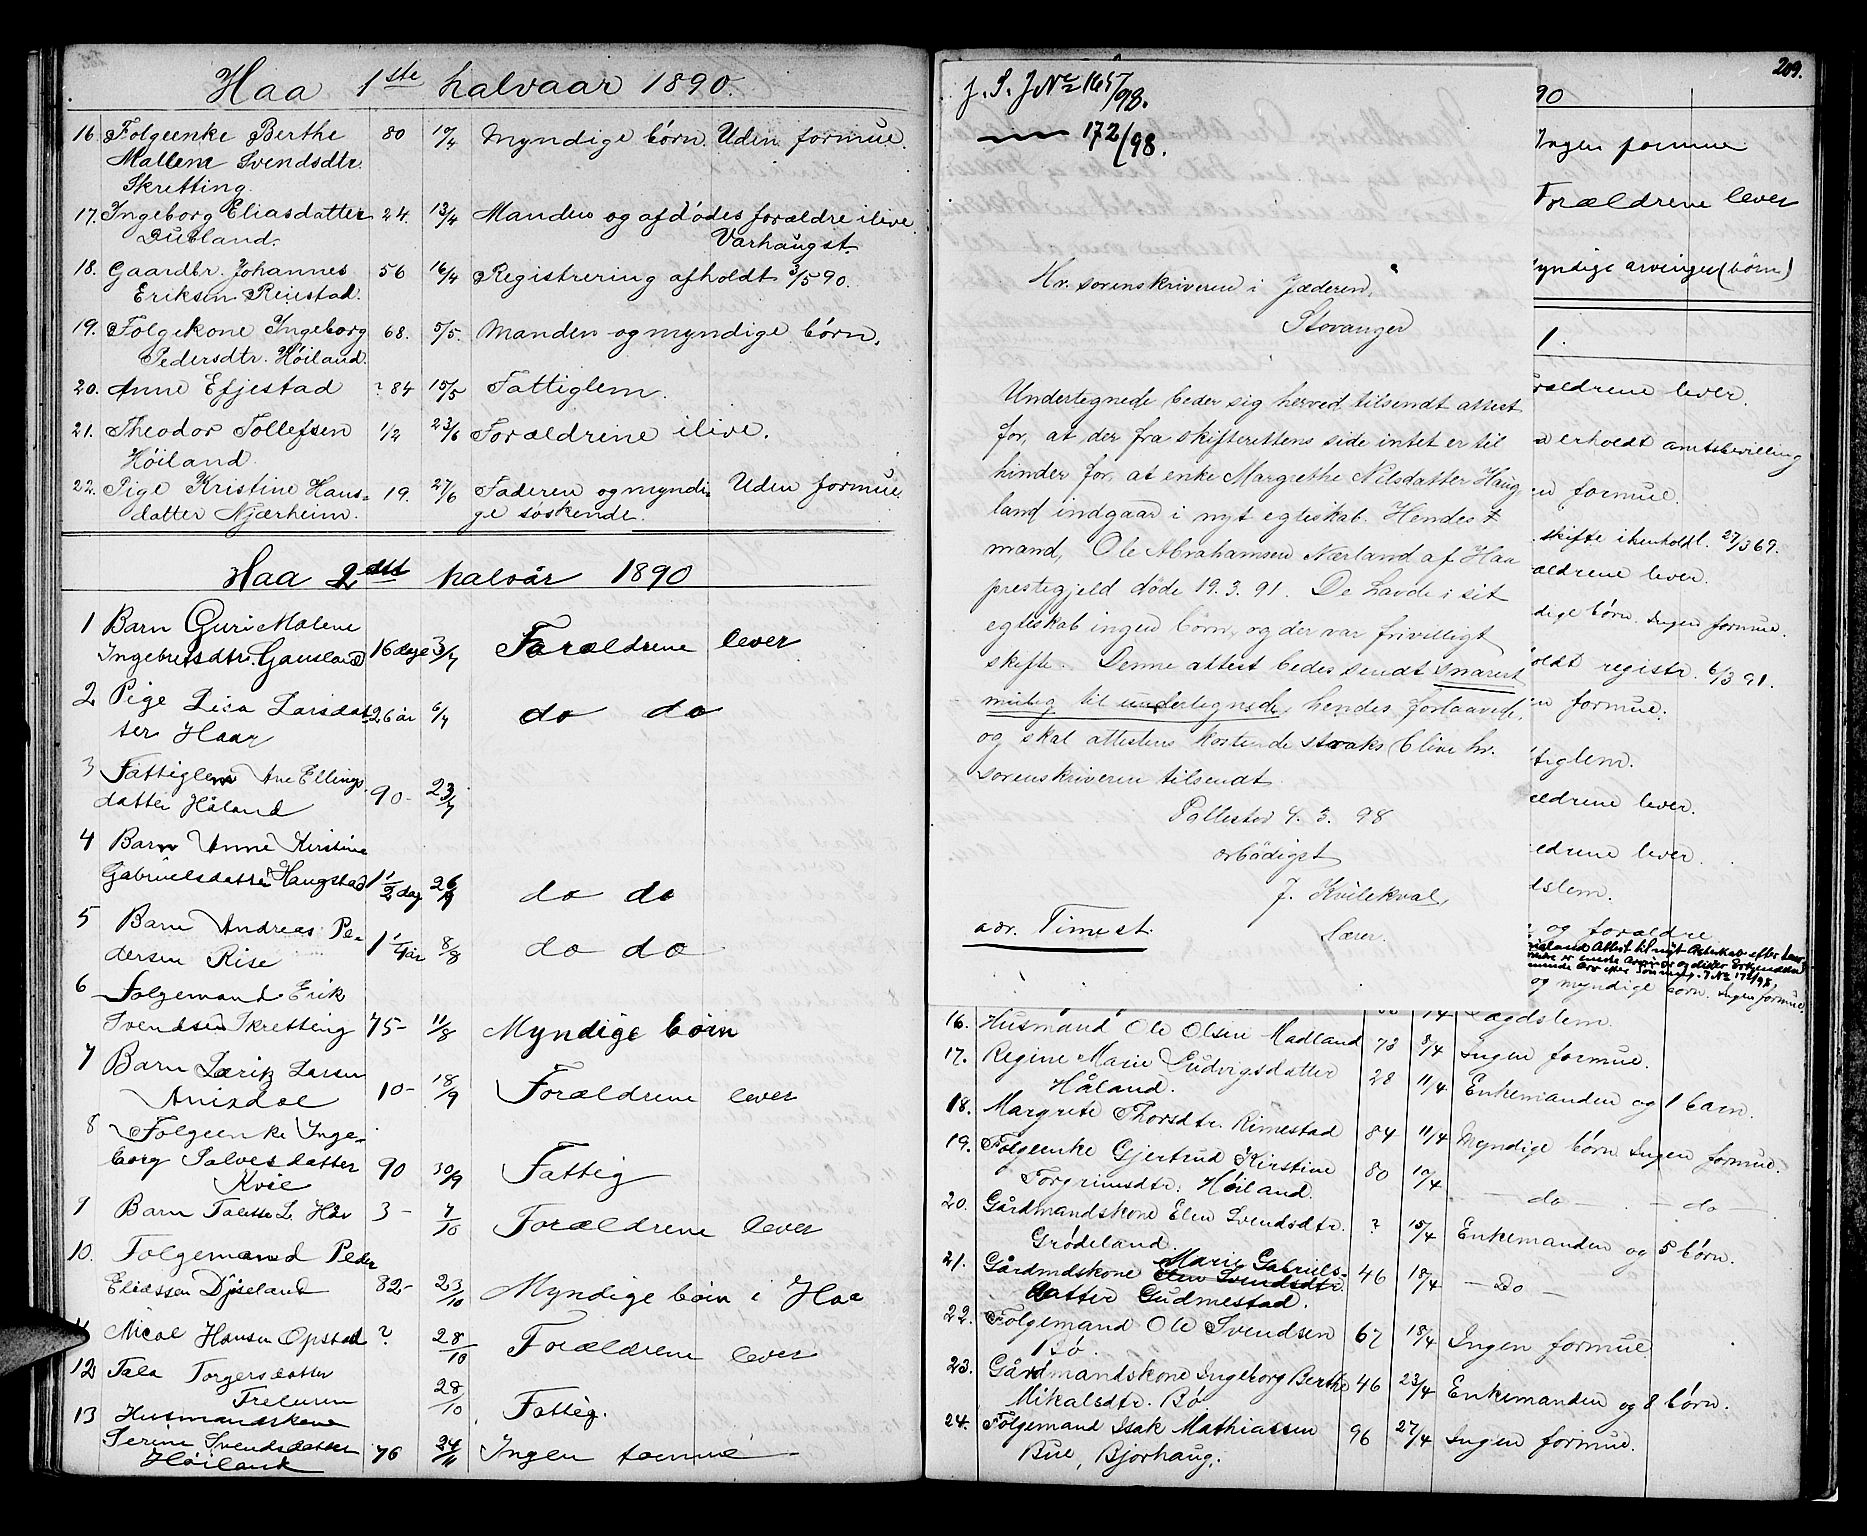 Haa 1ste halvaar 1890.
16. Følgeenke Berthe 80 10/4 Myndige børn. Uden formue.
Mallene Svendsdtr.
Skretting.
17. Ingeborg Eliasdatter 24. 13/4 Manden og afdødes forældre ilive.
Dubland. Varhaugst.
18. Gaardbr. Johannes 56 16/4 Registrering afholdt 3/5 90.
Eriksen Reiestad.
19. Følgekone Ingeborg 68. 5/5. Manden og myndige børn.
Pedersdtr. Høiland.
20. Anne Efjestad ? 84 15/5 Fattiglem.
21. Theodor Tollefsen 1/2 23/6 Forældrene ilive.
Høiland.
22. Pige Kristine Hans- 19. 27/6 Faderen og myndi- Uden formue.
datter Njærheim. ge søskende.
Haa 2det halvår 1890
1 Barn Guri Malene
Ingebretsdtr. Gausland 16 dage 3/7 Forældrene lever
2 Pige Lisa Larsdat- 26 år 6/7 do do
ter Haar
3 Fattiglem Ane Ellings
datter Håland 90- 23/7
4 Barn Anne Kirstine
Gabrielsdatter Haugstad 1 1/2 dag 26/7 do do
5 Barn Andreas Pe-
dersen Rise 1 1/4 år 8/8 do do
6 Følgemand Erik
Svendsen Skretting 75- 11/8 Myndige børn
7 Barn Lærik Larsen
Anisdal 10- 18/9 Forældrene lever
8 Følgeenke Inge-
borg Salvesdatter 90 30/9 Fattig
Kvie
9 Barn Talette L. Hår 3- 7/10 Forældrene lever
10. Følgemand Peder
Eliassen Djøseland 82- 23/10 Myndige børn i Haa
11 Nicol Hansen Opstad ? 28/10 Forældrene lever
12 Tala Torgersdatter
28/10 Fattig.
13 Husmandskone
Serine Svendsdatter 76 24/11 Ingen formue
Høiland
J. S. J No 165/98.
172/98.
Hr. sorenskriveren i Jæderen,
Stavanger
Undertegnede beder sig herved tilsendt attest
for, at der fra skifterettens side intet er til
hinder for, at enke Margrethe Nilsdatter Haug
land indgaar i nyt egteskab. Hendes †
mand, Ole Abrahamsen Nærland af Haa
prestegjeld døde 19.3.91. De havde i sit
egteskab ingen børn, og der var frivilligt
skifte. Denne attest bedes sendt snarest
mulig til undertegnede, hendes forlovede,
og skal attestens kostende straks blive hr.
sorenskriveren tilsendt.
4. 3. 98
ærbødigst
J. Kvilekval,
Lærer.
adr. Time st.
209.
90
Ingen formue
Forældrene lever
yndige arvinger (børn)
1.
rældrene lever.
erholdt amtsbevilling
n formue.
skifte ihenholdt. 27/3 69.
ældrene lever.
dige børn. Ingen formue.
holdt registr. 6/3 91.
en formue.
tiglem.
ældrene lever.
ældrene lever.
dslem.
og forældre
og myndige børn. Ingen formue.
16. Husmand Ole Olsen Madland 73 8/4 Lægdslem.
17. Regine Marie Ludvigsdatter Ingen formue.
Håland. 28 11/4 Enkemanden og 1 barn.
18. Margrete Thorsdtr. Rimestad 84 11/4 Myndige børn. Ingen formue.
19. Følgeenke Gjertrud Kirstine
Torgrimsdtr. Høiland. 80 10/4 — do — — do —
20. Gårdmandskone Elen Svendsdtr. ? 15/4 Enkemanden og 5 børn.
Grødeland.
21. Gårdmdskone Elen Svendsdtr. Marie Gabriels- 46 18/4 — Do —
datter Gudmestad.
22. Følgemand Ole Svendsen 67 18/4 Ingen formue.
Bø.
23. Gårdmandskone Ingeborg Berthe 46 23/4 Enkemanden og 8 børn.
Mikalsdtr. Bø.
24. Følgemand Isak Mathiassen 96 27/4 Ingen formue.
Bue, Bjorhaug.